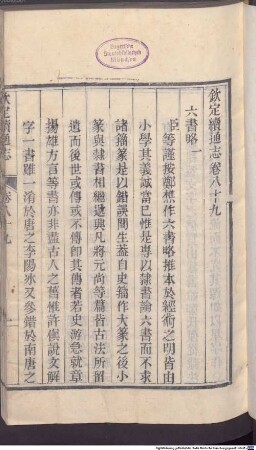 欽定續通志卷八十九
六書略一
臣等謹按鄭樵作六書略推本於經術之明皆由
小學其義誠當已惟是專以隸書論六書而不求
諸籀篆是以錯誤間生蓋自史籀作大篆之後小
篆與隸書相繼遞興凡將元尚等篇皆古法所留
遺而後世或傳或不傳即其傳者若史游急就章
揚雄方言等書亦非盡古人之舊惟許慎說文解
字一書雖一淆於唐之李陽冰又參錯於南唐之
欽定續通志
卷八十九